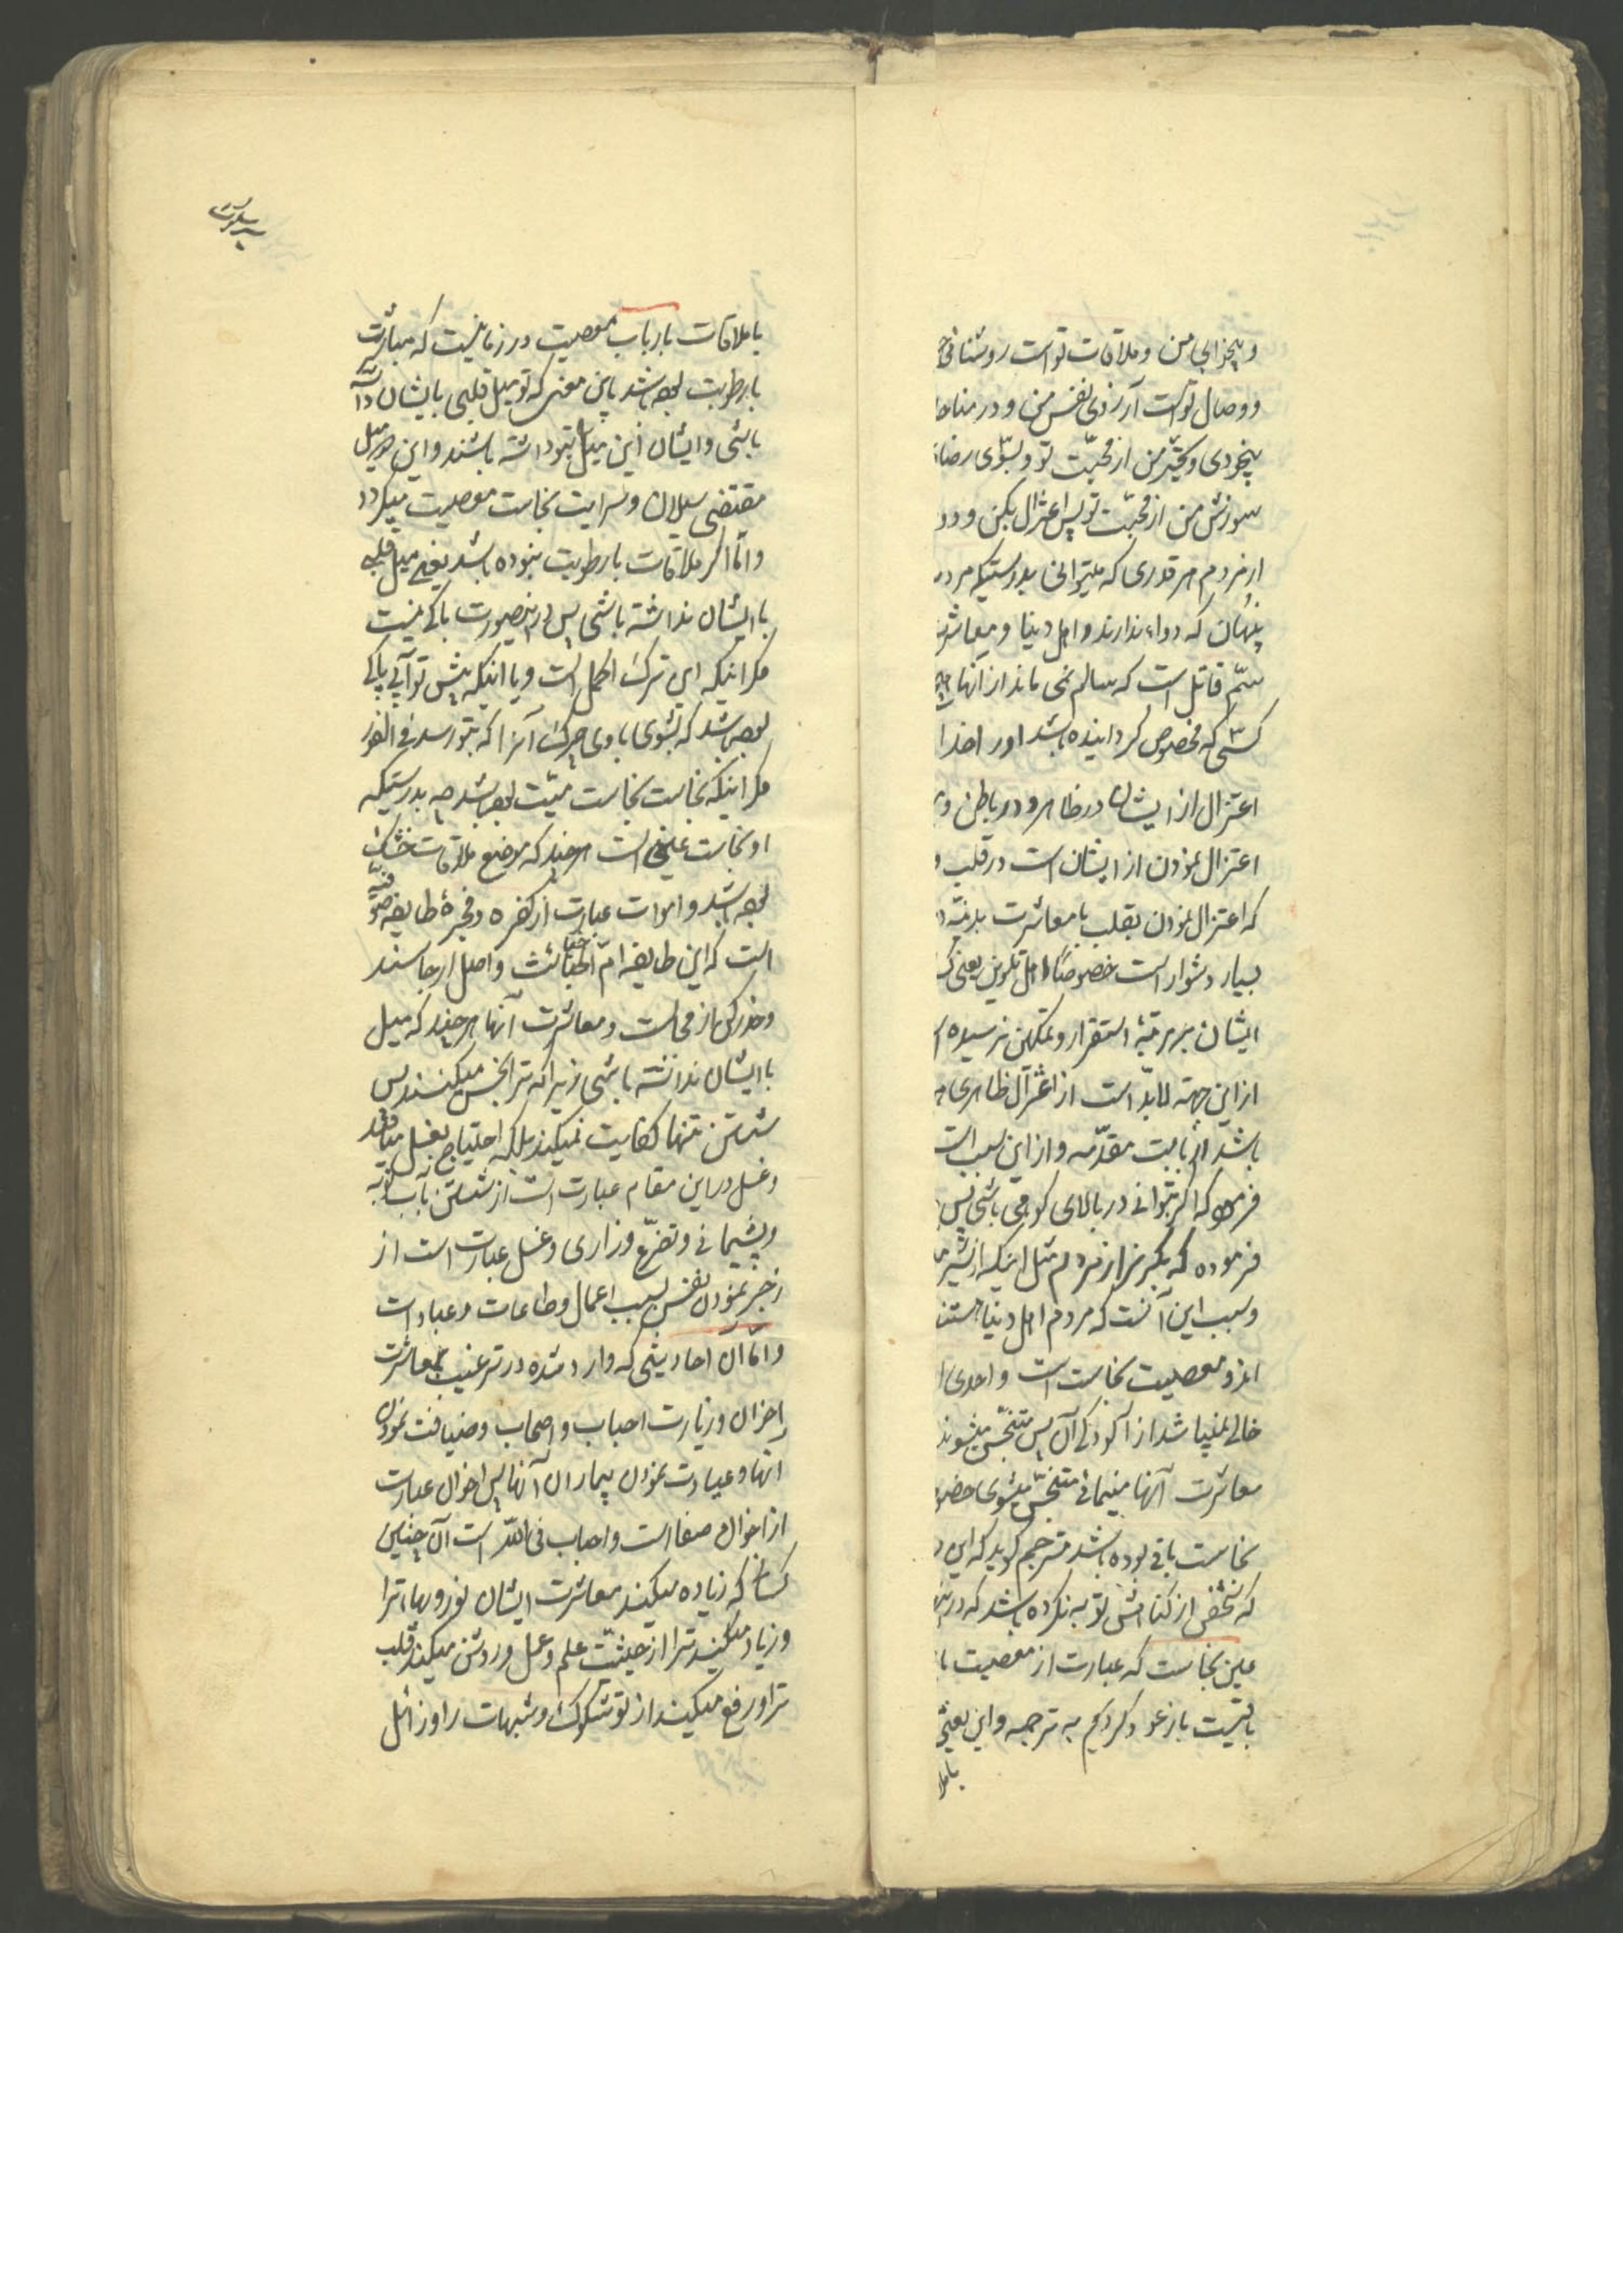 و بیخوابی من و ملاقات تو است روشنائی
و وصال تو است آرزوی نفس من و در مناجا
بیخودی و تحیّر من از محبّت تو و بسوی رضا
سوزش من از محبّت تو پس اعتزال بکن و دو
از مردم هر قدری که میتوانی بدرستیکه مرد
پنهان که دواء ندارند و اهل دنیا و معاشرت
سمّ قاتل است که سالم نمی ماند از آنها
کسی که مخصوص کردانیده باشد او را خدا
اعتزال از ایشان در ظاهر و در باطن و
اعتزال نمودن از ایشان است در قلب و
که اعتزال نمودن بقلب با معاشرت بدنیّه
بسیار دشوار است خصوصًا اهل تلوین یعنی
ایشان بمرتبهٔ استقرار و تمکین نرسیده
از این جهة لابدّ است از اعتزال ظاهری
باشد از بابت مقدّمه و از این سبب است
فرموده که اگر بتوانی در بالای کوهی باشی پس
فرموده که بگریز از مردم مثل اینکه از شیر
و سبب این آنست که مردم اهل دنیا هستند
و معصیت نجاست است و احدی
خالی نمیباشد از آلودگی آن پس متنجّس میشوند
معاشرت آنها متنجّس میشوی خصو
نجاست باقی بوده باشد مترجم کوید که این
که شخص از کناهش توبه نکرده باشد که در
عین نجاست که عبارت از معصیت
باقیست باز عود کردیم به ترجمه و این یعنی
باملا
با ملاقات بارباب معصیت در زمانیست که مباشرت
با رطوبت بوده باشد باین معنی که تو میل قلبی بایشان داشته
باشی و ایشان این میل بتو داشته باشند و این میل
مقتضی سیلان و سرایت نجاست معصیت میکردد
و امّا اگر ملاقات با رطوبت نبوده باشد یعنی میل قلبی
با ایشان نداشته باشی پس در اینصورت باکی نیست
مگر اینکه این ترک اکمل است و یا اینکه پیش تو آبی پاکی
بوده باشد که بشوی با وی چرک آنرا که بتو رسد فی الفور
مگر اینکه نجاست نجاست میّت بوده باشد چه بدرستیکه
او نجاست عینی است هر چند که موضع ملاقات خشک
بوده باشد و اموات عبارت از کفره و فجرهٔ طایفه صوفیّه
است که این طایفه امّ الخبائث و اصل ارجاسند
و حذر کن از مجالست و معاشرت آنها هر چند که میل
با ایشان نداشته باشی زیرا که ترا نجس میکنند پس
شستن تنها کفایت نمیکند بلکه احتیاج بغسل میافتد
و غسل در این مقام عبارت است از شستن بآب توبه
و پشیمانی و تضرّع و زاری و غسل عبارت است از
زجر نمودن نفس بسبب اعمال و طاعات و عبادات
و امّا آن احادیثی که وارد شده در ترغیب بمعاشرت
اخوان و زیارت احباب و اصحاب و ضیافت نمودن
آنها و عیادت نمودن بیماران آنها پس اخوان عبارت
از اخوان صفا است و احباب فی اللّه است آن چنین
کسان که زیاده میکند معاشرت ایشان نور و بهاء ترا
و زیاد میکنند ترا از حیثیّت علم و عمل و روشن میکنند قلب
ترا و رفع میکنند از تو شکوک و شبهات را و زائل